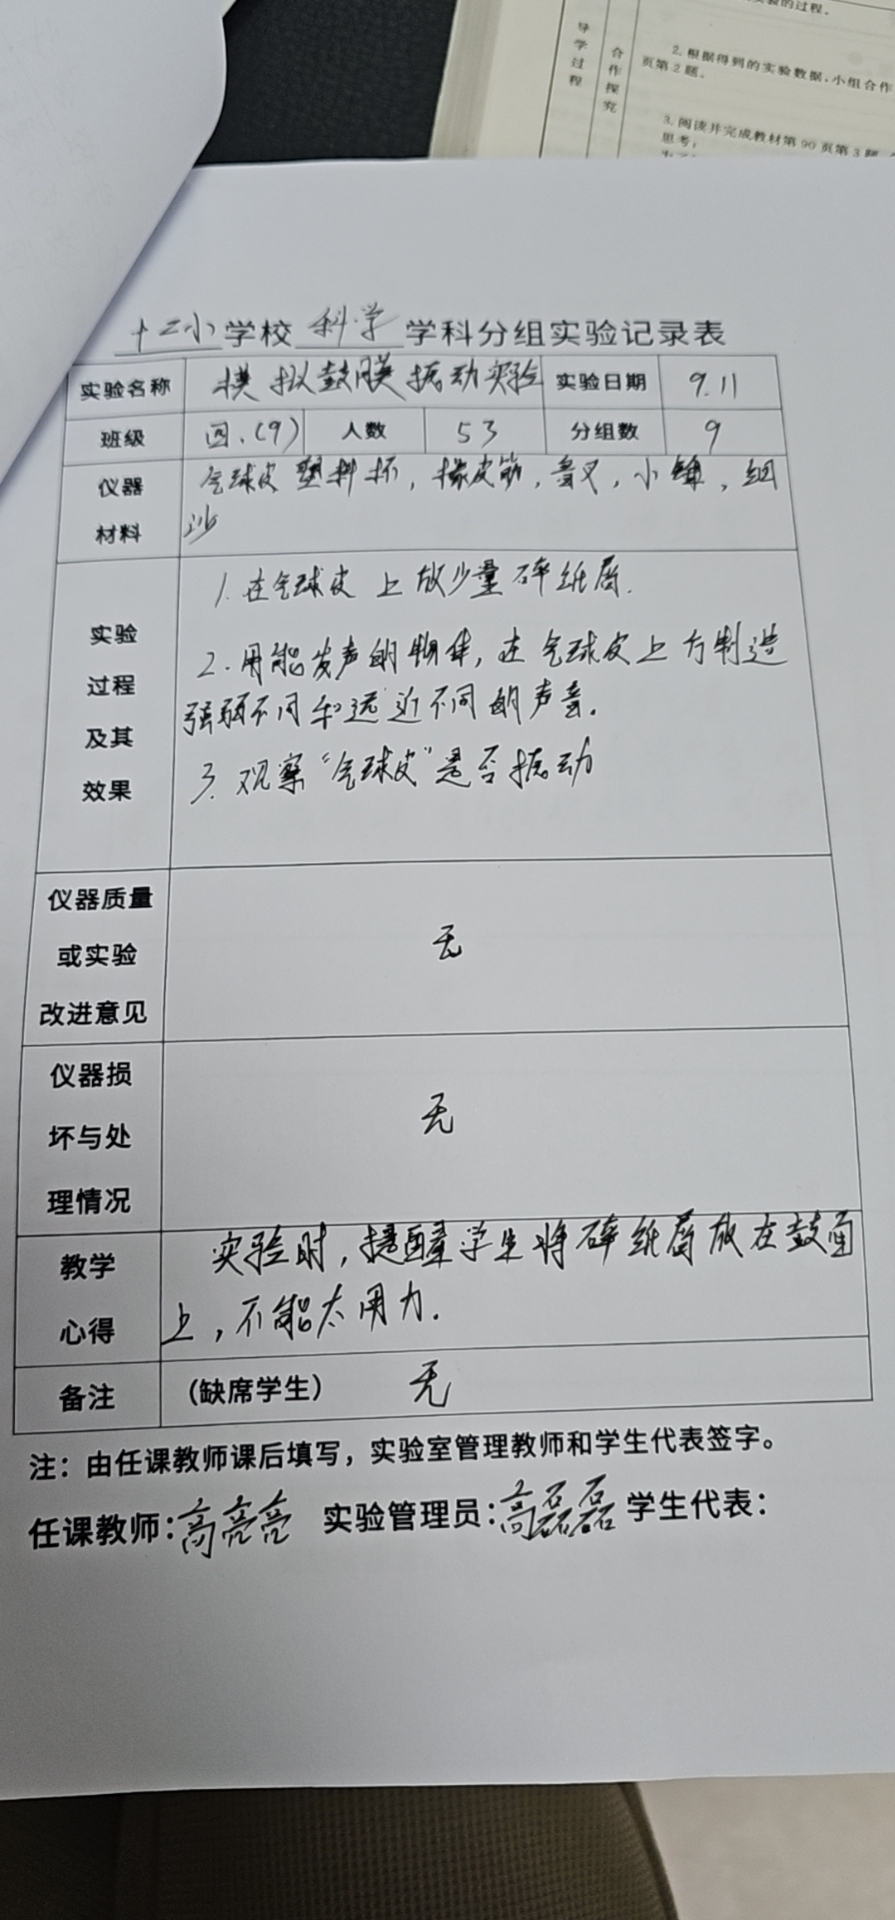 验的过程。
导学过程
合作探究
2.根据得到的实验数据，小组合作
页第2题。
3.阅读并完成教材第90页第3题
思考：
十二小学校 科学 学科分组实验记录表
实验名称 模拟鼓膜振动实验 实验日期 9.11
班级 四.(9) 人数 53 分组数 9
仪器材料 气球皮 塑料杯，橡皮筋，音叉，小锤，细
沙
实验过程及其效果
1.在气球皮上放少量碎纸屑.
2.用能发声的物体，在气球皮上方制造
强弱不同和远近不同的声音.
3.观察“气球皮”是否振动
仪器质量或实验改进意见 无
仪器损坏与处理情况 无
教学心得 实验时，提醒学生将碎纸屑放在鼓面
上，不能太用力.
备注 (缺席学生) 无
注：由任课教师课后填写，实验室管理教师和学生代表签字。
任课教师：高亮亮 实验管理员：高磊磊 学生代表：